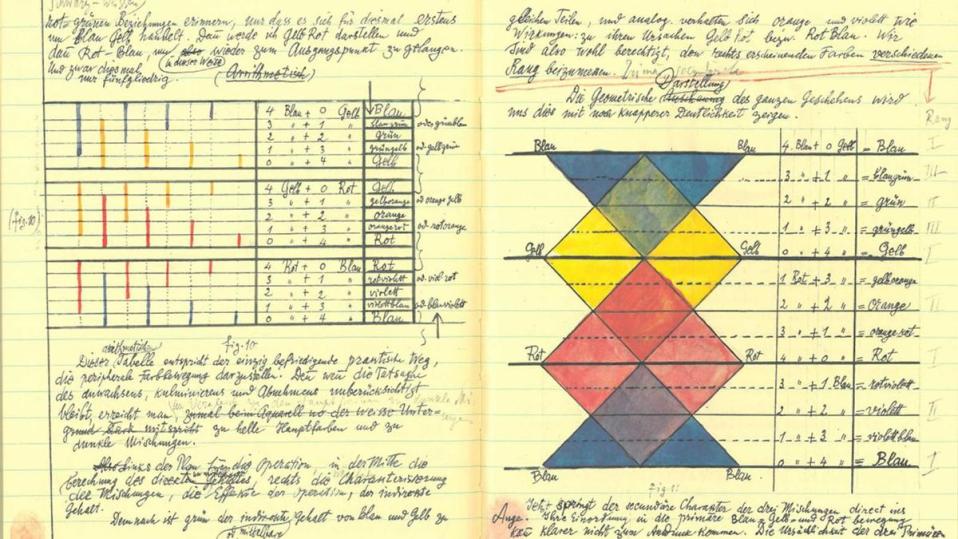 rot grünen Beziehungen erinnern, nur dass es sich für diesmal erstens
um Blau Gelb handelt. Dann werde ich Gelb Rot darstellen und
dann Rot-Blau, um also wieder zum Ausgangspunkt zu gelangen.
in dieser Weise
Und zwar diesmal
nur fünfgliedrig. (Arithmetisch)
4 Blau + 0 Gelb Blau
3 " + 1 " blaugrün od grünblau
2 " + 2 " grün
1 " + 3 " grüngelb od gelbgrün
0 " + 4 " Gelb
4 Gelb + 0 Rot Gelb
3 " + 1 " gelborange od orange gelb
2 " + 2 " orange
1 " + 3 " orangerot od rotorange
0 " + 4 " Rot
(fig. 10)
4 Rot + 0 Blau Rot
3 " + 1 " rotviolett od viol rot
2 " + 2 " violett
1 " + 3 " violettblau od blauviolett
0 " + 4 " Blau
fig. 10
arithmetische
Dieser Tabelle entspricht der einzig befriedigende practische Weg,
die peripherale Farbbewegung darzustellen. Den wenn die Tatsache
des anwachsens, kulminierens und Abnehmens unberücksichtigt
bleibt, erreicht man zumal beim Aquarell wo der weisse Unter-
grund stark mitspricht zu helle Hauptfarben und zu
dunkle Mischungen.
Links der Plan für die Operation, in der Mitte die
berechnung des directen Gehaltes, rechts die Charakterisierung
der Mischungen, die Effekte der Operation, der indirecte
Gehalt.
Demnach ist grün der indirecte Gehalt von blau und Gelb zu
gleichen Teilen, und analog verhalten sich orange und violett wie
Wirkungen zu ihren Ursachen Gelb Rot bezw Rot Blau. Wir
sind also wohl berechtigt, den rechts erscheinenden Farben verschiedenen
Rang beizumessen.
Darstellung
Die Geometrische des ganzen Geschehens wird
uns dies mit noch knapperer Deutlichkeit zeigen.
Rang
Blau Blau 4 Blau + 0 Gelb = Blau I
3 " + 1 " = blaugrün III
2 " + 2 " = grün II
1 " + 3 " = grüngelb III
Gelb Gelb 0 " + 4 " = Gelb I
1 Rot + 3 " = gelborange
2 " + 2 " = Orange II
3 " + 1 " = orange rot
Rot Rot 4 " + 0 " = Rot I
3 " + 1 Blau = rotviolett
2 " + 2 " = violett II
1 " + 3 " = violettblau
Blau Blau 0 " + 4 " = Blau I
fig. 11
Jetzt springt der secundäre Charakter der drei Mischungen direct ins
Auge. Ihre Einordnung in die primäre Blau-Gelb- und Rot bewegung
kan klarer nicht zum Ausdruck kommen. Die Ursächlichkeit der drei Primären